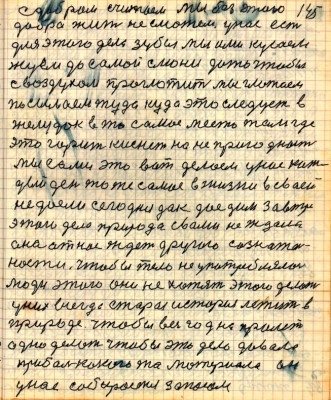 с добром считаем мы без этого 145
добра жить не сможем у нас ест
для этого дела зубы мы ими кусаем
жуем до самой слюни дать чтобы
с воздухом проглотит мы глотаем
посилаем туда куда это следует в
желудок в то самое место там где
это горит киснет на не пригодност
мы сами это вот делаем у нас каж
дый ден то же самое в жизни в своей
не доели сегодня дак доедим завтра
этого дела природа с вами не ждала
она от нас ждет другого сознател
ности. чтобы тело не употреблялос
люди этого они не хотят этого делат
у них всегда старая история летит в
природе. чтобы все год на
одно делат чтобы это дело давала
прибал какого та материала он
у нас собирается запасом